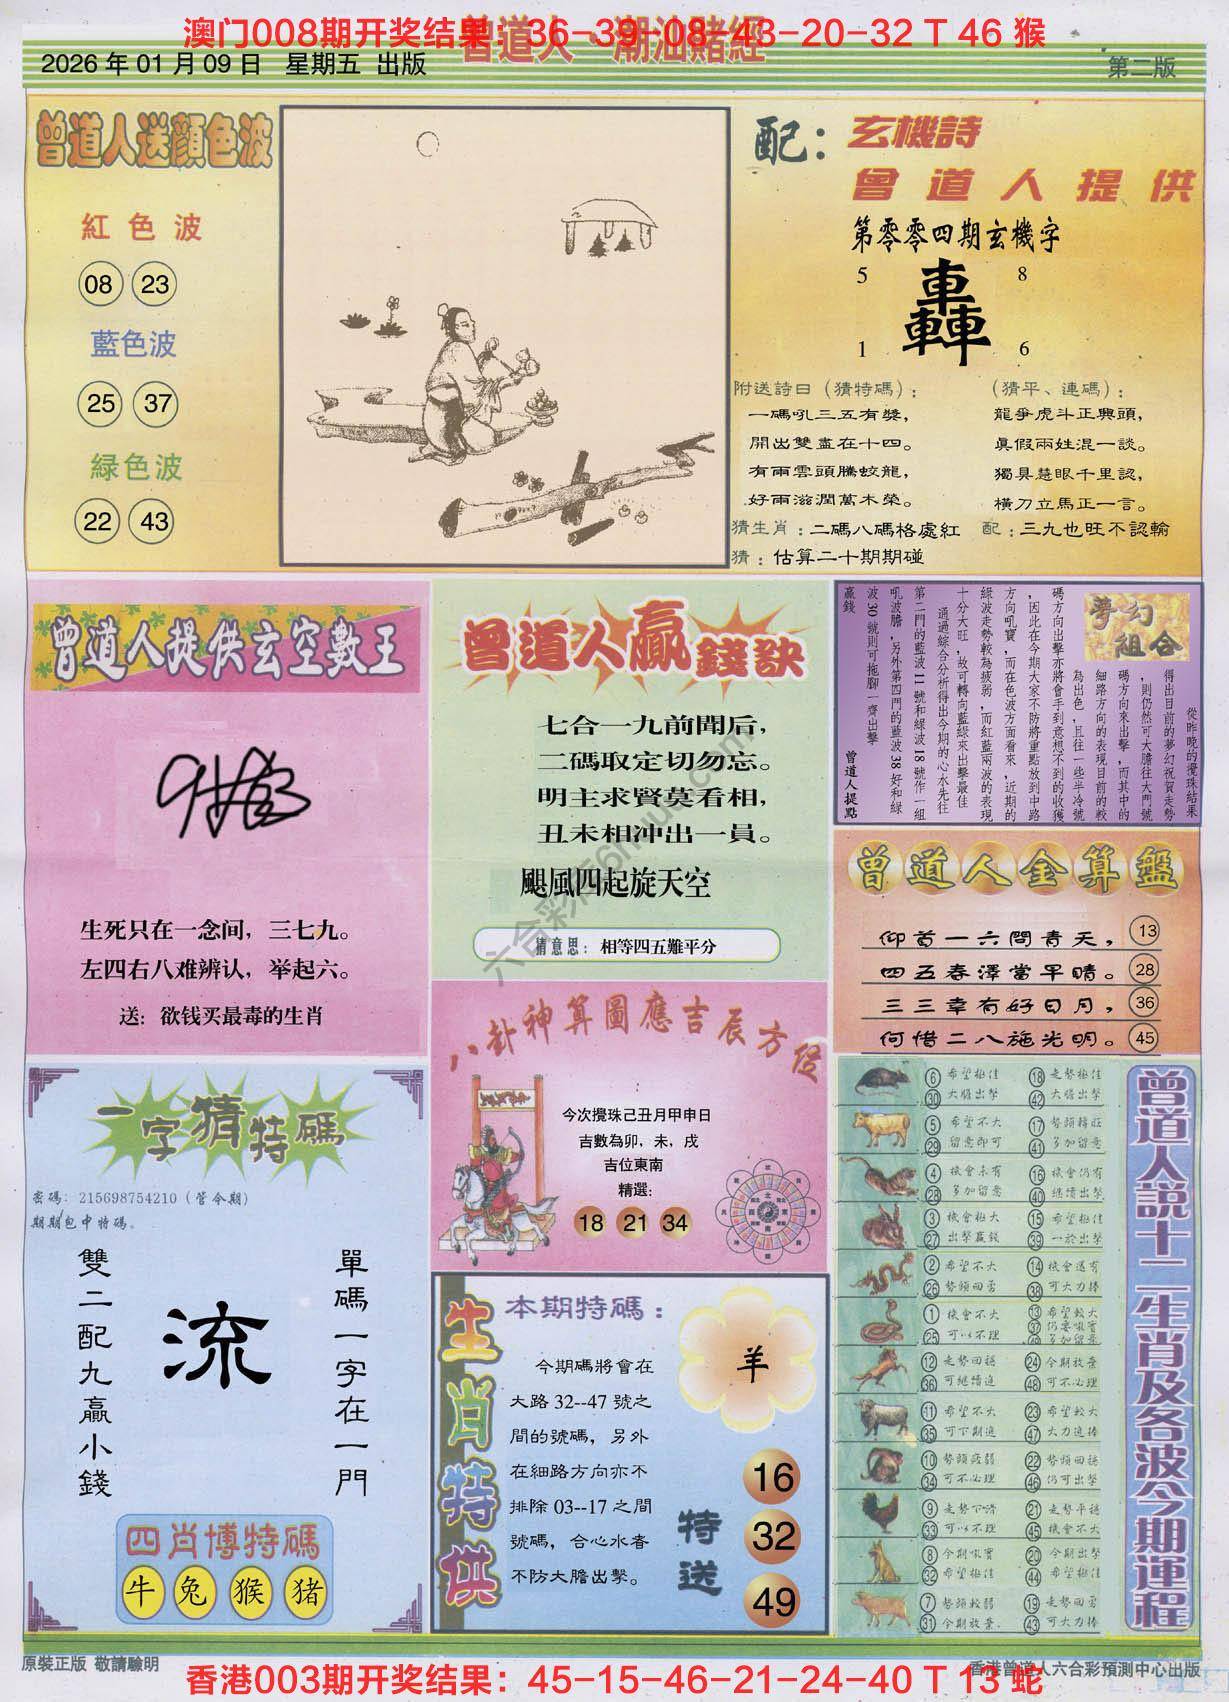 澳门008期开奖结果：36-39-08-43-20-32 T 46 猴
曾道人·潮汕賭經
2026 年 01 月 09 日 星期五 出版
第二版
曾道人送顔色波
紅色波
08 23
藍色波
25 37
緑色波
22 43
配：玄機詩
曾道人提供
第零零四期玄機字
5 8
轟
1 6
附送詩曰（猜特碼）：
一碼吼三五有獎，
開出雙盡在十四。
有雨雲頭騰蛟龍，
好雨滋潤萬木榮。
（猜平、連碼）：
龍爭虎斗正興頭，
真假兩姓混一談。
獨具慧眼千里認，
橫刀立馬正一言。
猜生肖：二碼八碼格處紅
配：三九也旺不認輸
猜：估算二十期期碰
曾道人提供玄空數王
生死只在一念间，三七九。
左四右八难辨认，举起六。
送：欲钱买最毒的生肖
曾道人贏錢訣
七合一九前聞后，
二碼取定切勿忘。
明主求賢莫看相，
丑未相沖出一員。
颶風四起旋天空
猜意思：相等四五難平分
夢幻組合
從昨晚的攪珠結果
得出目前的夢幻祝賀走勢
，則仍然可大膽往大門號
碼方向來出擊，而其中的
細路方向的表現目前的較
為出色，且往一些半冷號
碼方向出擊亦將會手到意想不到的收獲
，因此在今期大家不防將重點放到中路
方向吼寶，而在色波方面看來，近期的
綠波走勢較為疲弱，而紅藍兩波的表現
十分大旺，故可轉向藍綠來出擊最佳
通過綜合分析得出今期的心水先往
第二門的藍波 11 號和綠波 18 號作一組
吼波膽，另外第四門的藍波 38 好和綠
波 30 號則可拖腳一齊出擊
贏錢
曾道人提點
曾道人金算盤
仰首一六問青天， 13
四五春澤當早晴。 28
三三章有好日月， 36
何惜二八施光明。 45
八卦神算圖應吉辰方位
今次攪珠己丑月甲申日
吉數為卯，未，戌
吉位東南
精選：
18 21 34
一字猜特碼
密碼：215698754210（管令期）
期期包中特碼。
單碼一字在一門
流
雙二配九贏小錢
四肖博特碼
牛 兔 猴 猪
生肖特供
本期特碼：
今期碼將會在
大路 32--47 號之
間的號碼，另外
在細路方向亦不
排除 03--17 之間
號碼，合心水者
不防大膽出擊。
羊
特送
16
32
49
曾道人説十二生肖及各波今期運程
6 希望極佳 18 走勢極佳
30 大膽出擊 42 大膽出擊
5 希望不大 17 勢頭轉旺
29 留意即可 41 多加留意
4 機會未有 16 機會仍有
28 多加留意 40 繼續出擊
3 機會極大 15 希望極佳
27 出擊贏錢 39 一於出擊
2 希望不大 14 機會還有
26 勢頭回勇 38 可大力捧
1 機會不大 13 希望較大
25 可以不理 37 仍要吼實
多加留意
12 走勢回穩 24 今期放棄
36 可繼續追 48 可不必理
11 希望不大 23 希望較大
35 可下期追 47 大力追捧
10 勢頭疲弱 22 勢頭回穩
34 可不必理 46 仍可出擊
9 走勢下滑 21 走勢平穩
33 可以不理 45 機會不大
8 今期吼實 20 今期出擊
32 希望極佳 44 希望極佳
7 勢頭較弱 19 走勢回勇
31 今期放棄 43 可大力捧
原裝正版 敬請驗明
香港曾道人六合彩預測中心出版
香港003期开奖结果：45-15-46-21-24-40 T 13 蛇